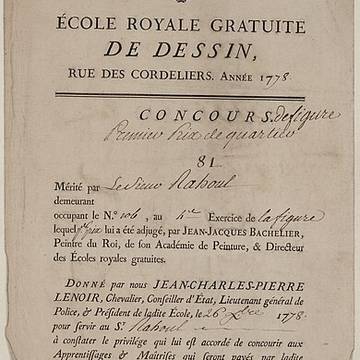 ÉCOLE ROYALE GRATUITE
DE DESSIN,
RUE DES CORDELIERS. ANNÉE 1778
CONCOURS. de figure
Premier Prix de quartier
81
Mérité par Le Sieur Rahoul
demeurant
occupant le N.° 106, au 4me Exercice de la figure
lequel prix lui a été adjugé, par JEAN-JACQUES BACHELIER,
Peintre du Roi, de son Académie de Peinture, & Directeur
des Écoles royales gratuites.
DONNÉ par nous JEAN-CHARLES-PIERRE
LENOIR, Chevalier, Conseiller d'État, Lieutenant général de
Police, & Président de ladite École, le 26 Xbre 1778
pour servir au S.r Rahoul
à constater le privilége qui lui est accordé de concourir aux
Apprentissages & Maîtrises qui seront payés par ladite